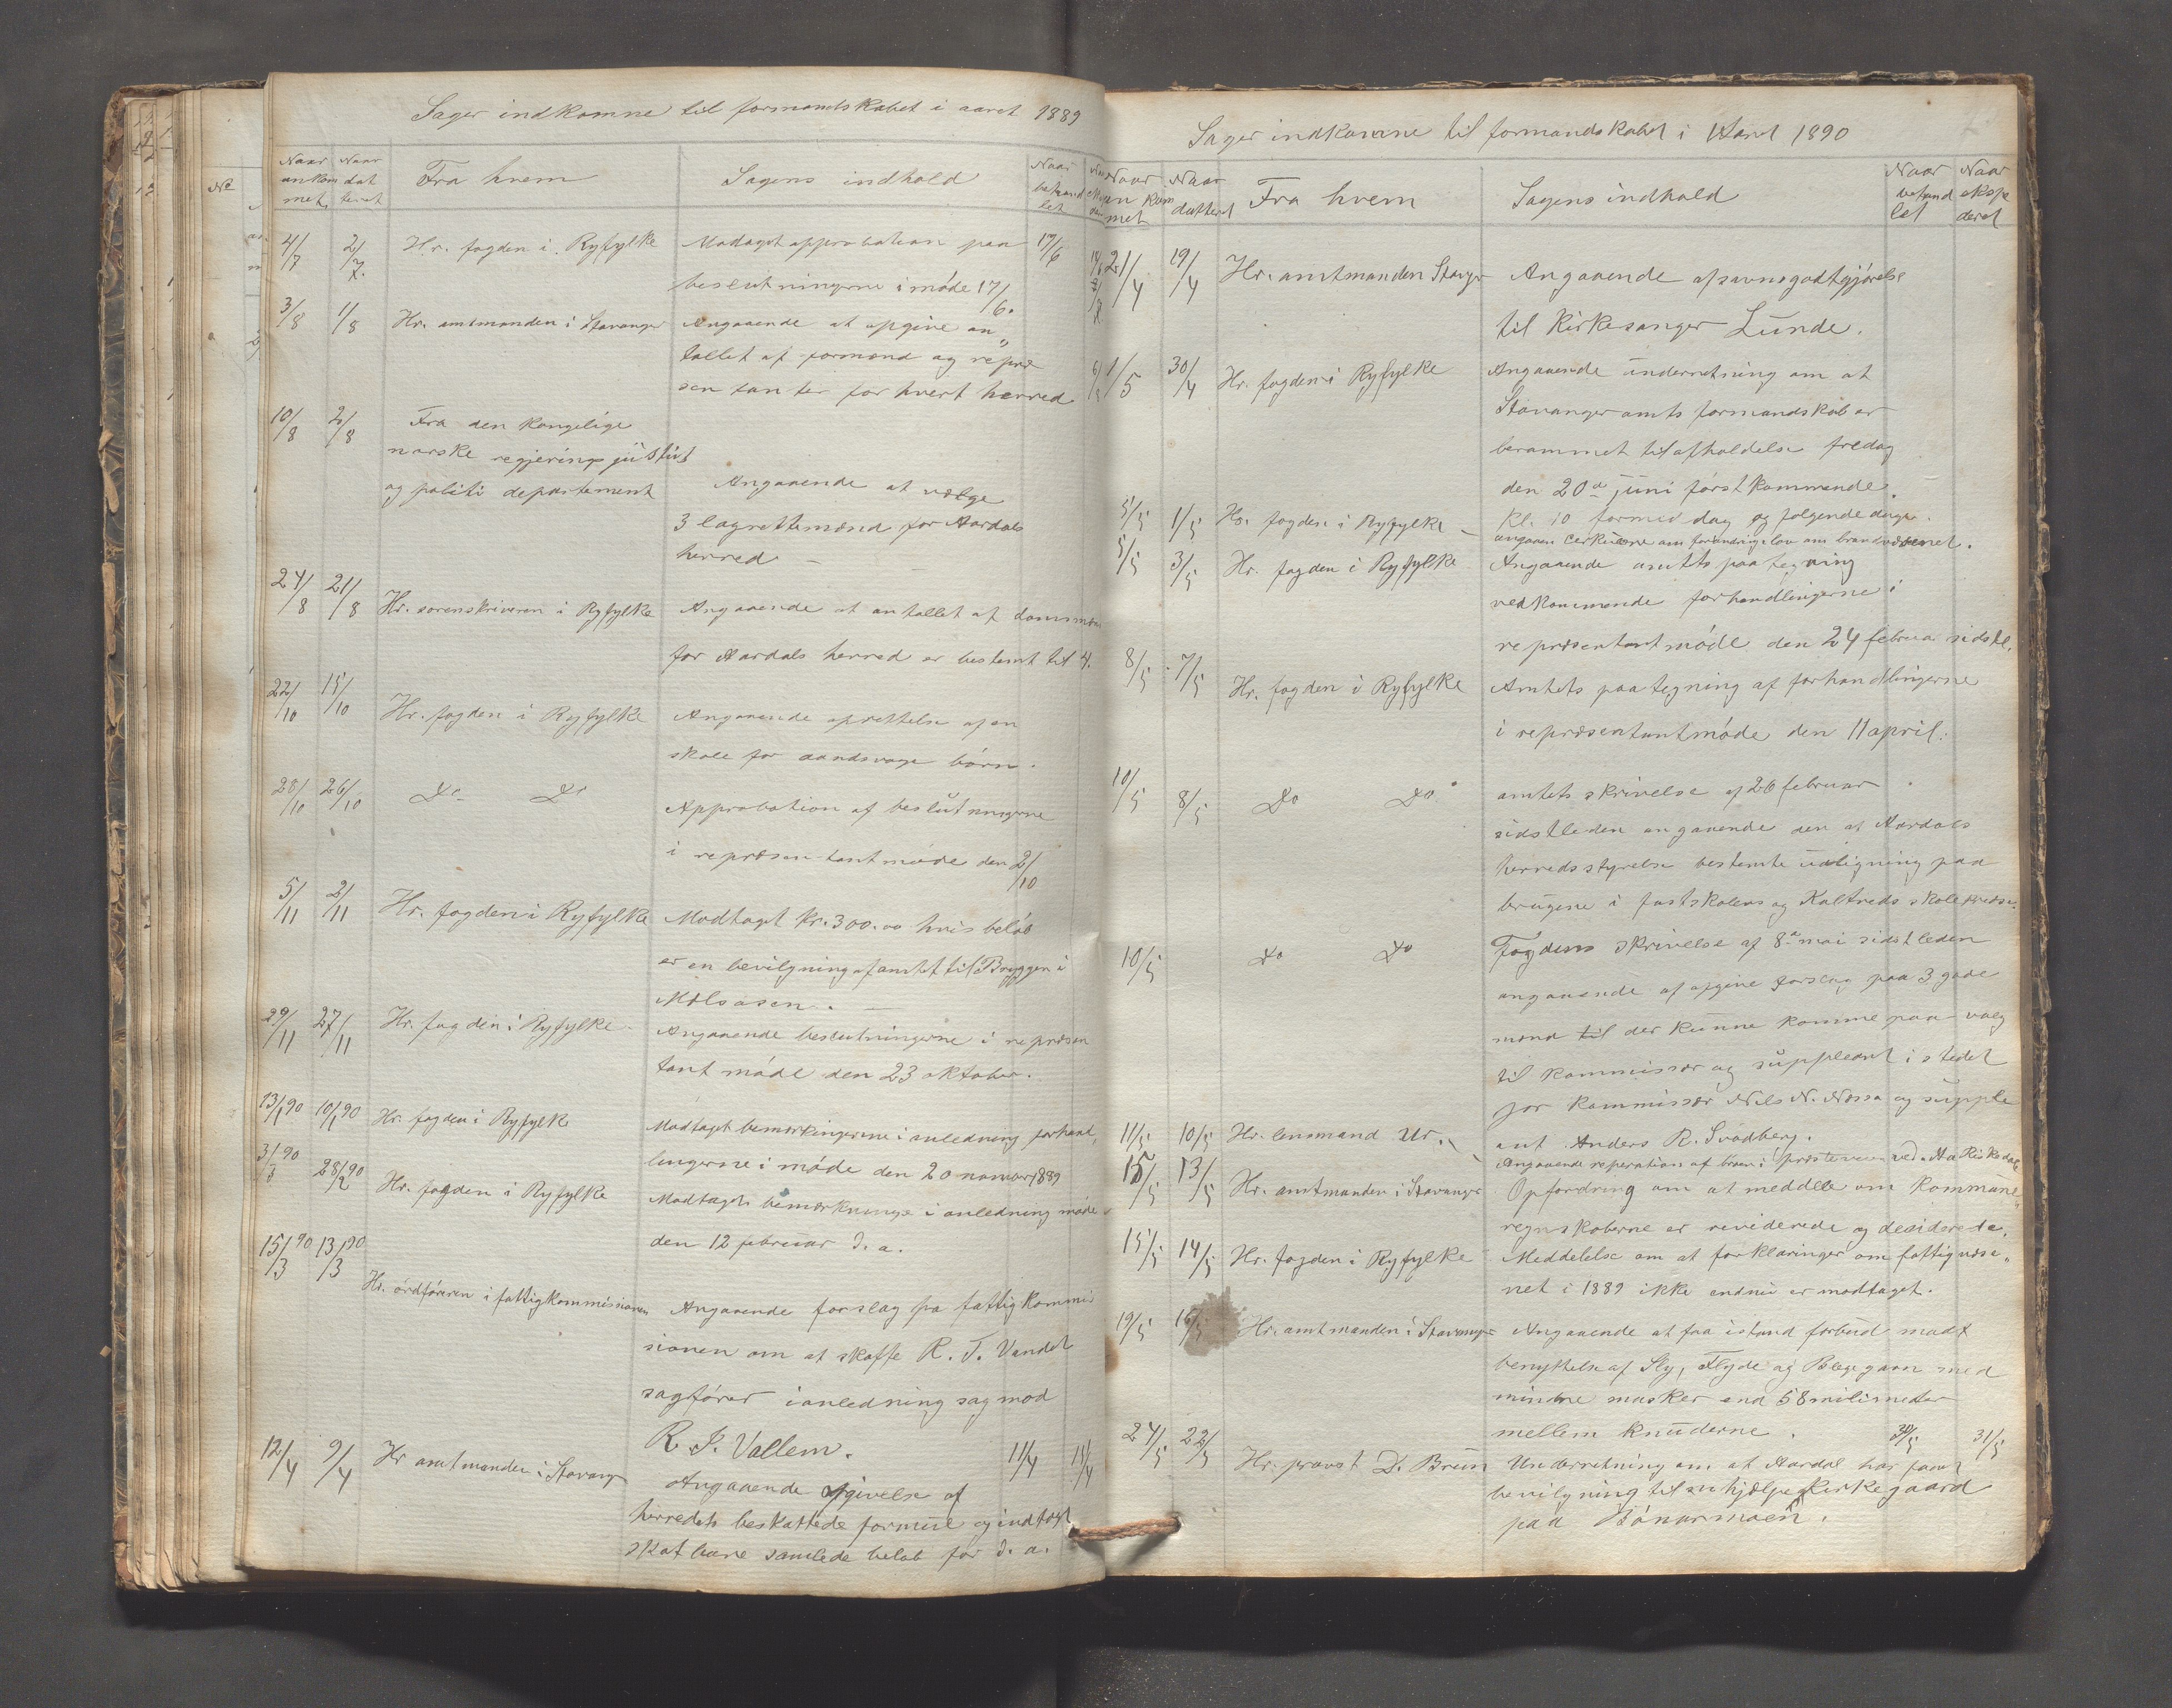 Sager indkomne til formandskabet i aaret 1889
Naar ankommet
Naar datteret
Fra hvem
Sagens indhold
Naar behandlet
4/7 2/7 Hr. fogden i Ryfylke Modaget approbation paa 17/6
beslutningerne i møde 17/6.
3/8 1/8 Hr. amtmanden i Stavanger Angaaende at opgive an„
tallet af formænd og repræ
sentanter for hvert herred
10/8 2/8 Fra den kongelige
norske regjerings justits
og politi departement Angaaende at vælge
3 lagrettemænd for Aardals
herred
24/8 21/8 Hr. sorenskriveren i Ryfylke Angaaende at antallet af domsmæn
for Aardals herred er bestemt til 4.
22/10 15/10 Hr. fogden i Ryfylke Angaaende oprettelse af en
skole for aandsvage børn.
28/10 26/10 Do Do Approbation af beslutningerne
i repræsentantmøde den 2/10
5/11 2/11 Hr. fogden i Ryfylke Modtaget kr. 300.00 hvis beløb
er en bevilgning af amtet til Bryggen i
Mælsosen.
29/11 27/11 Hr. fogden i Ryfylke Angaaende beslutningerne i repræsen
tant møde den 23 oktober.
13/1 90 10/1 90 Hr. fogden i Ryfylk Modtaget bemærkingerne i anledning forhand„
lingerne i møde den 20 november 1889
3/3 90 28/2 90 Hr. fogden i Ryfylke Modtaget bemærkninge i anledning møde
den 12 februar d. a.
15/3 90 13/3 90 Hr. ordføreren i fattigkommissionen Angaaende forslag pa fattigkommis
sionen om at skaffe R. T. Vandel
sagfører i anledning sag mod
R. J. Vallem.
12/4 9/4 Hr amtmanden i Stavanger Angaaende opgivelse af 11/4 11/4
herredets beskattede formue og indtægt
skatbare samlede beløb for d. a.
Sager indkomne til formandskabet i Aaret 1890
Naar ankommet
Naar datteret
Fra hvem
Sagens indhold
Naar behandlet
Naar ekspederet
21/4 19/4 Hr. amtmanden Stavger Angaaende afsavnsgodtgjørelse
til Kirkesanger Lunde.
1/5 30/4 Hr. fogden i Ryfylke Angaaende underretning om at
Stavanger amts formandskab er
berammet til afholdelse fredag
den 20de juni førstkommende.
Kl. 10 formid dag og følgende dage.
5/5 1/5 Hr. fogden i Ryfylke angaaen Cerkulære om forandring i lov om brandvæsenet.
5/5 3/5 Hr. fogden i Ryfylke Angaaende amtts paategning
vedkommende forhandlingerne i
repræsentantmøde den 24 februar sidstl.
8/5 7/5 Hr. fogden i Ryfylke Amtets paategning af forhandlingerne
i repræsentantmøde den 11 april.
10/5 8/5 Do Do amtets skrivelse af 26 februar
sidstleden angaaende den at Aardals
herredsstyrelse bestemte udligning paa
brugene i fastskolens og Kaltveds skolekredse.
10/5 Do Do Fogdens skrivelse af 8de mai sidstleden
angaaende af opgive forslag paa 3 gode
mænd til der kunne komme paa valg
til kommissær og suppleant i stedet
for kommissær Nils N. Nessa og supple
ant Anders R. Svadberg.
11/5 10/5 Hr. lensmand Ur. Angaaende reperation af broen i præsteveien ved Aa Riskedal
15/5 13/5 Hr. amtmanden i Stavanger Opfordring om at meddele om Kommune„
regnskaberne er reviderede og desiderede.
15/5 14/5 Hr. fogden i Ryfylke Meddelelse om at forklaringer om fattigvæse„
net i 1889 ikke endnu er modtaget.
19/5 16/5 Hr. amtmanden i Stavanger Angaaende at faa istand forbud modt
benyttelse af Sly, Flyde og Bægegarn med
mindre masker end 58 milimeter
mellem knuderne.
24/5 22/5 Hr. provst D. Bruun Underretning om at Aardal har faaet 30/5 31/5
bevilgning til en hjælpekirkegaard
paa Bønarmoen.